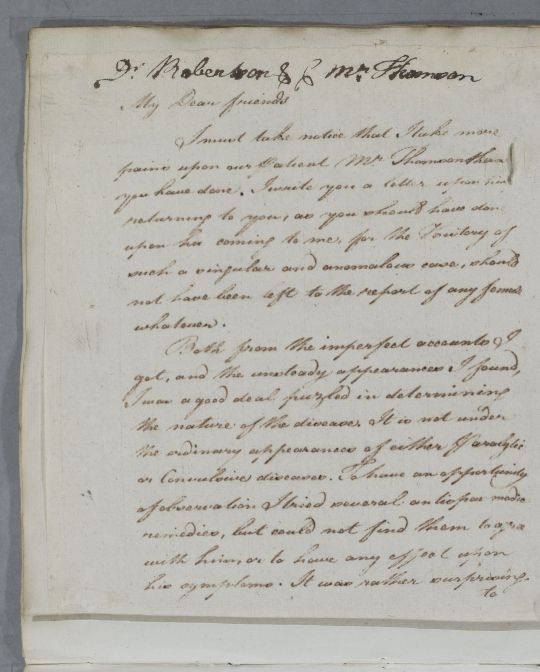 Dr. Robertson & Mr. Thomson
My Dear friends
I must take notice that I take more
pains upon our Patient Mr. Thomson than
you have done. I write you a letter upon his
returning to you, as you should have done
upon his coming to me, for the History of
such a singular and anomalous case, should
not have been left to the report of any female
whatever.
Both from the imperfect accounts I
got, and the unsteady appearances I found,
I was a good deal puzled in determining
the nature of the disease. It is not under
the ordinary appearances of either Paralytic
or Convulsive diseases. To have an opportunity
of observation I tried several antispasmodic
remedies, but could not find them to agree
with him, or to have any effect upon
his symptoms. It was rather surprising
to